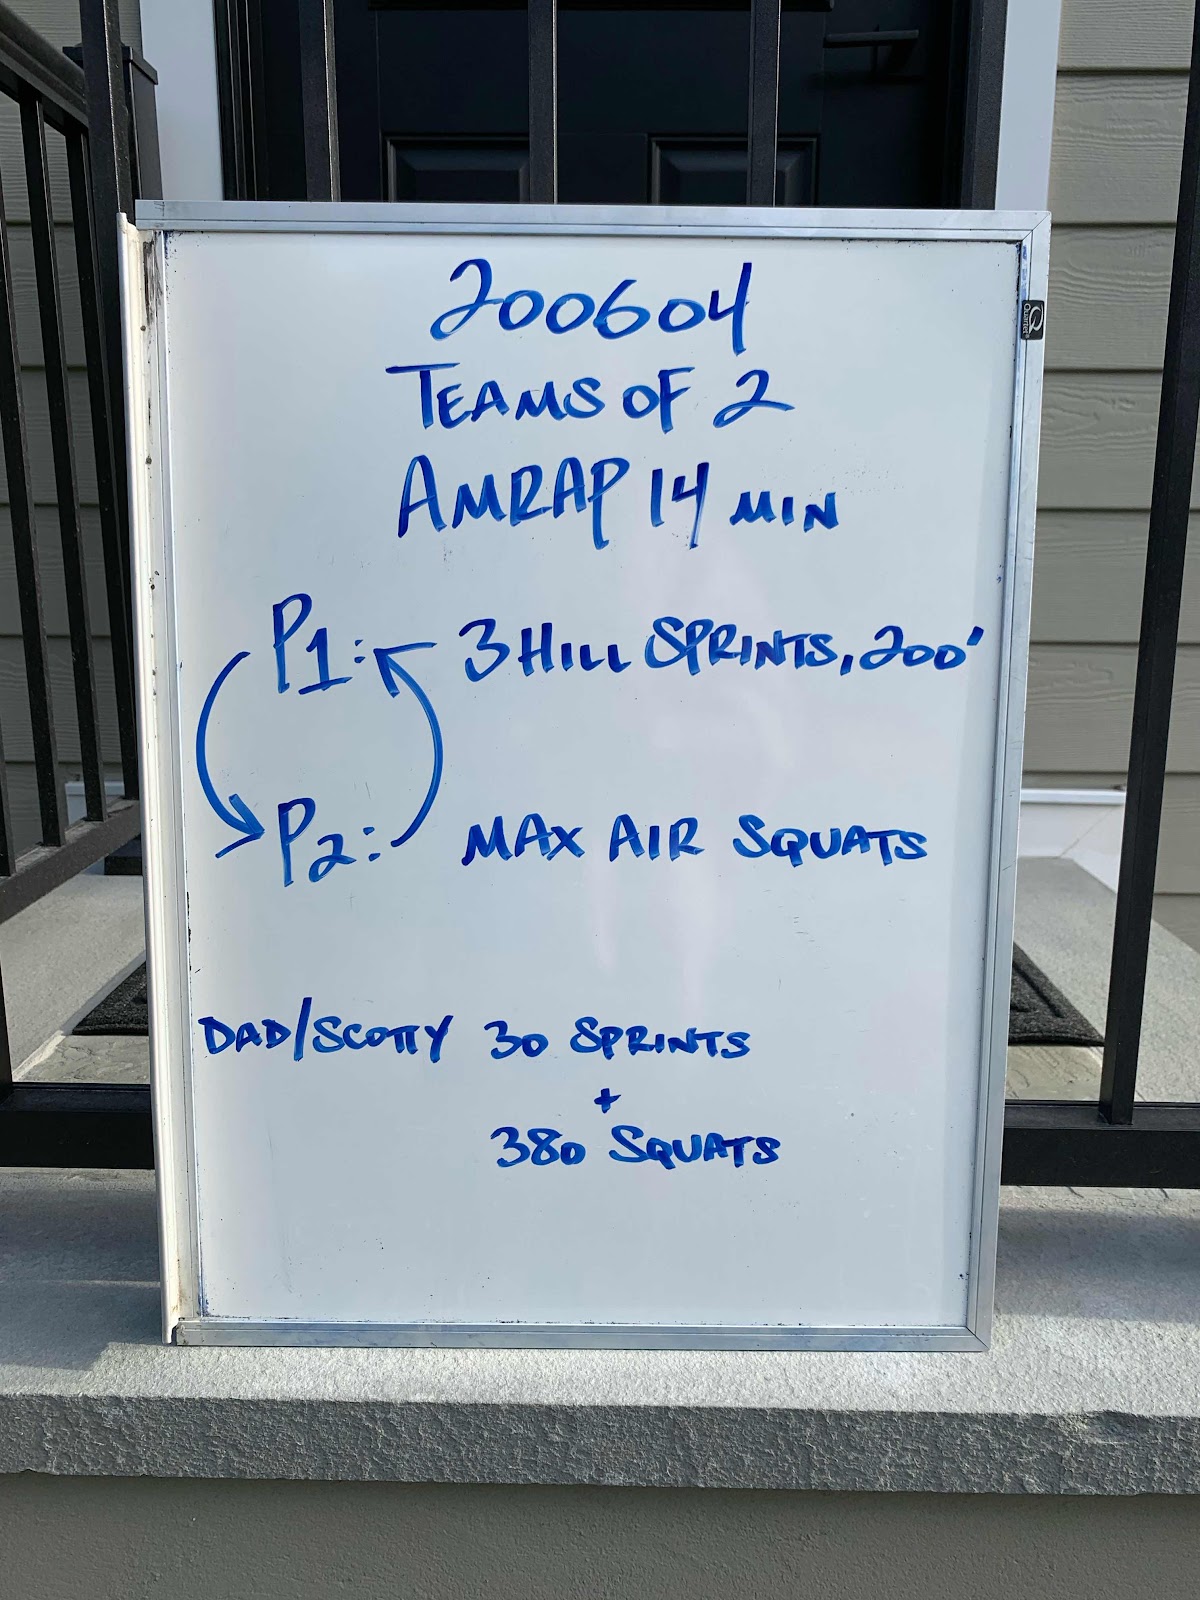 200604
TEAMS OF 2
AMRAP 14 MIN
P1: 3 HILL SPRINTS, 200'
P2: MAX AIR SQUATS
DAD/SCOTTY 30 SPRINTS
+
380 SQUATS
Quartet